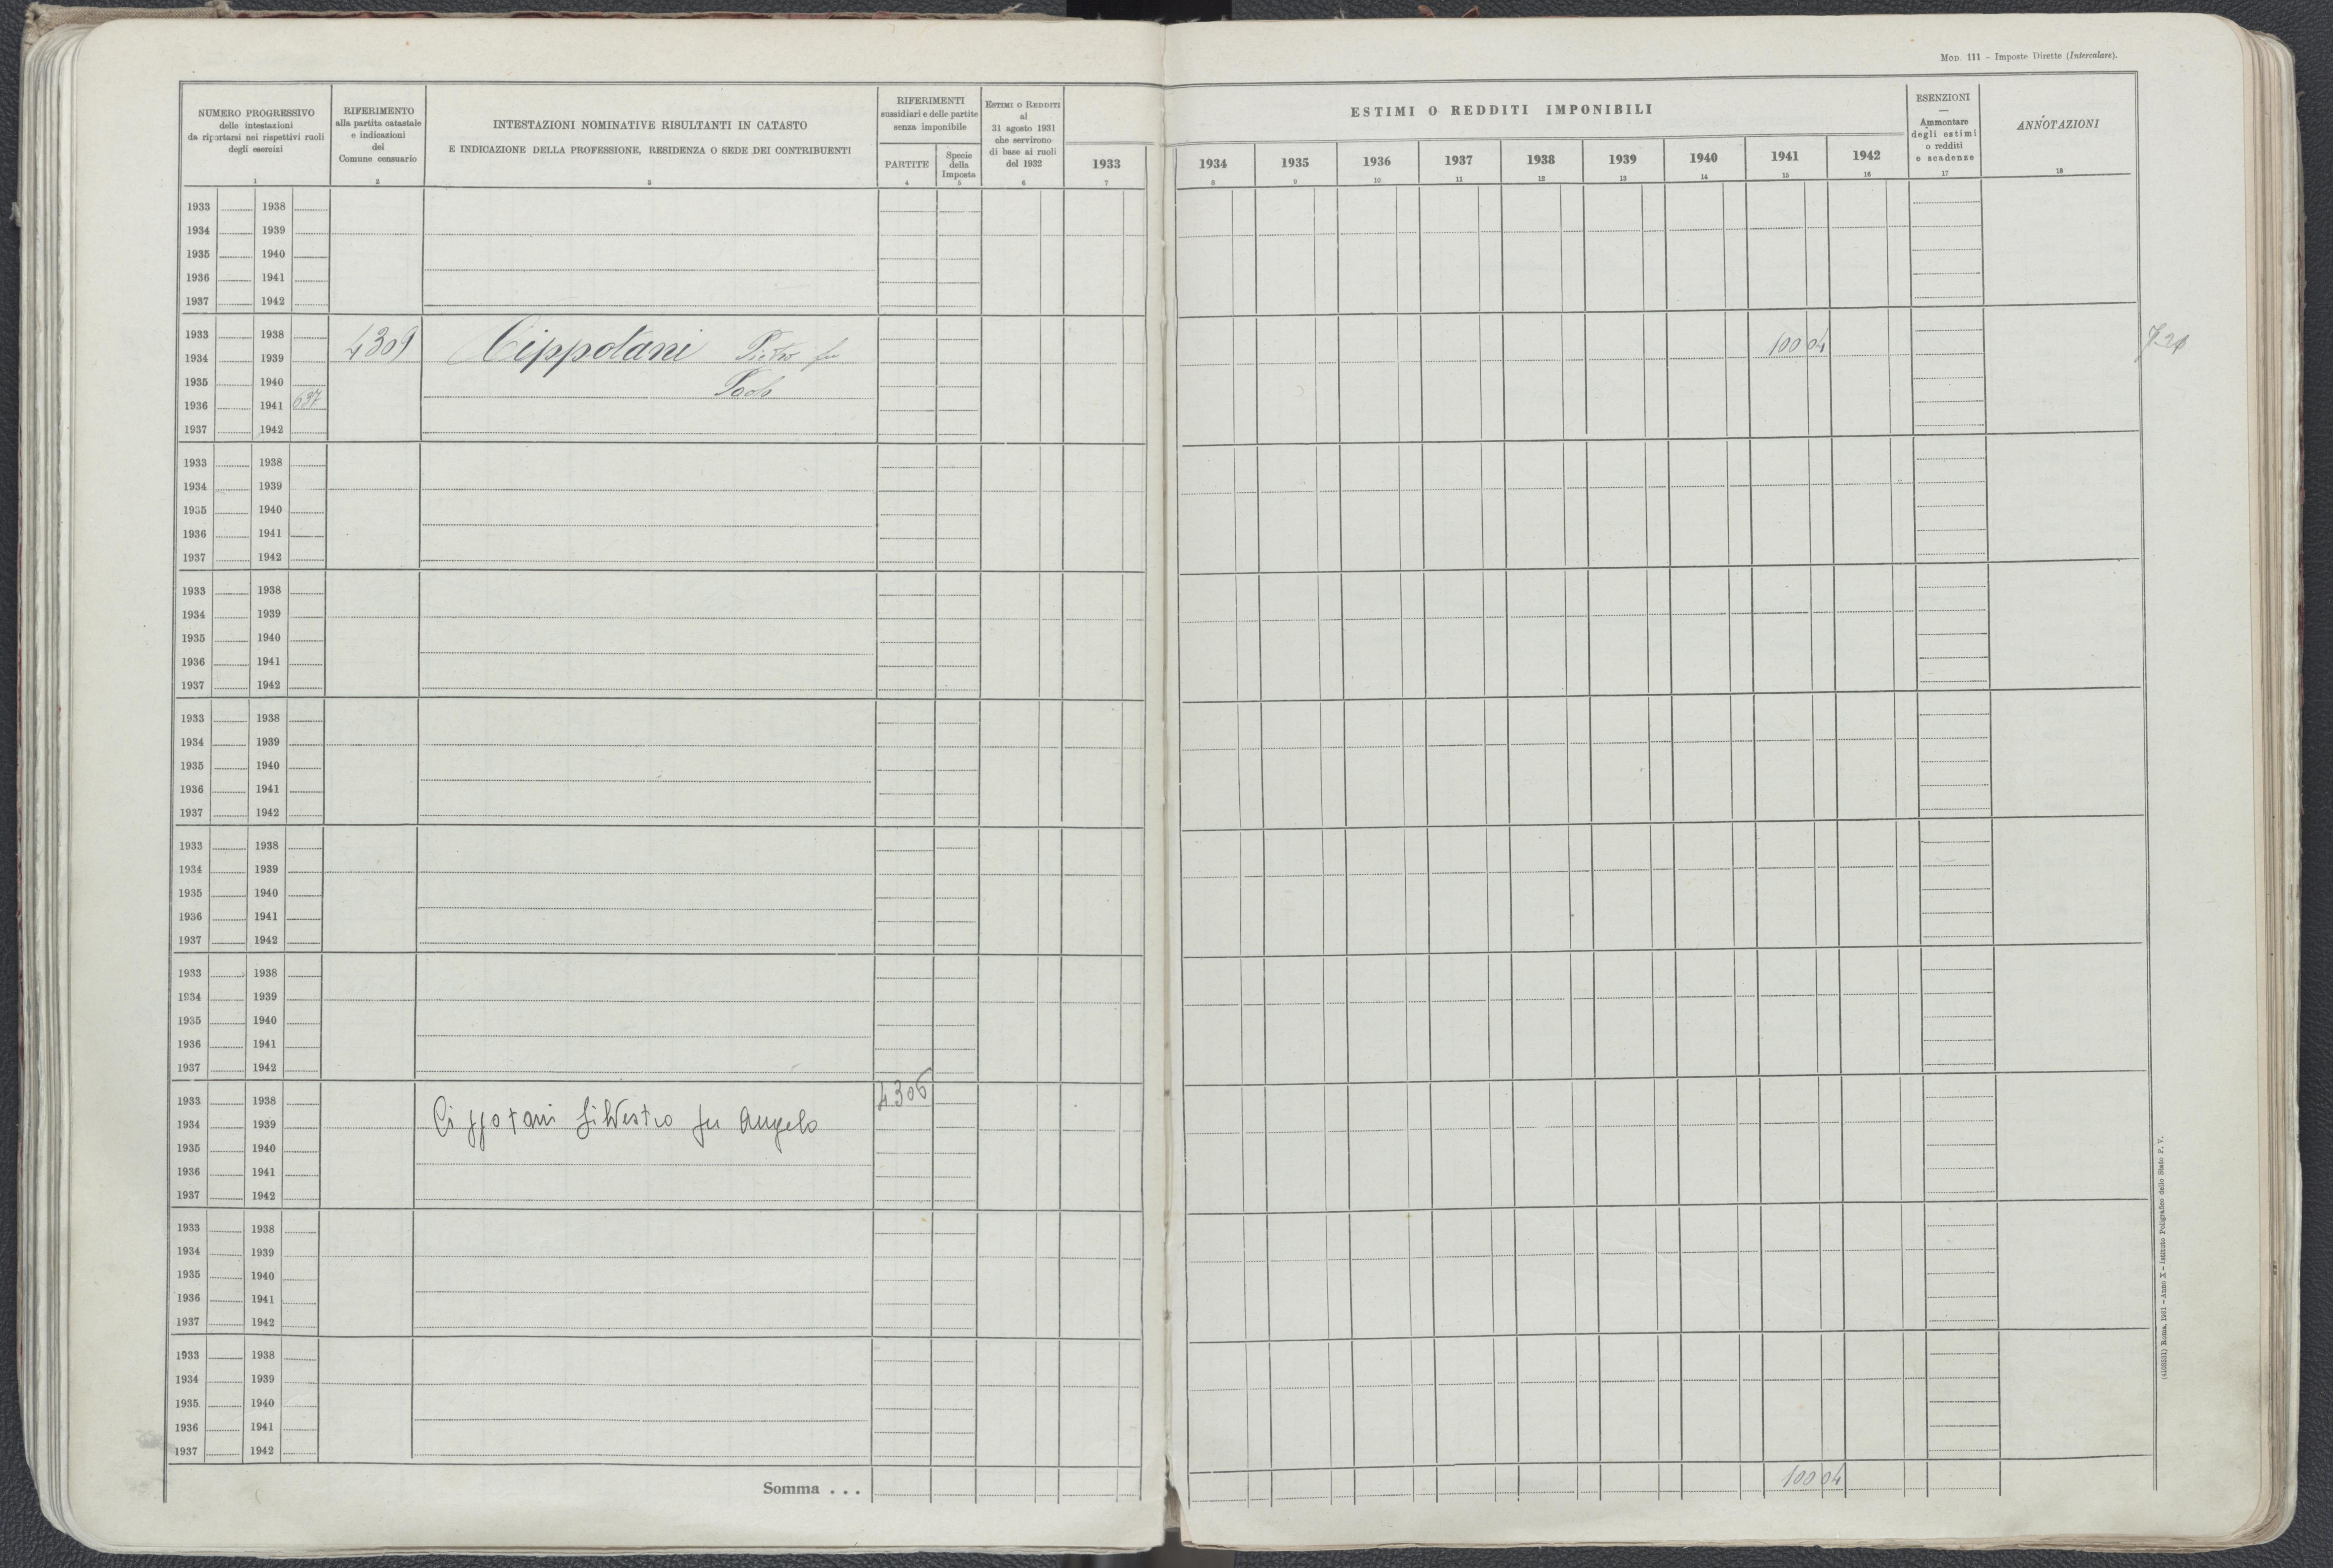 MOD. 111 - Imposte Dirette (Intercalare).
NUMERO PROGRESSIVO
delle intestazioni
da riportarsi nei rispettivi ruoli
degli esercizi
1
RIFERIMENTO
alla partita catastale
e indicazioni
del
Comune censuario
2
INTESTAZIONI NOMINATIVE RISULTANTI IN CATASTO
E INDICAZIONE DELLA PROFESSIONE, RESIDENZA O SEDE DEI CONTRIBUENTI
3
RIFERIMENTI
sussidiari e delle partite
senza imponibile
PARTITE
4
Specie
della
Imposta
5
ESTIMI O REDDITI
al
31 agosto 1931
che servirono
di base ai ruoli
del 1932
6
ESTIMI O REDDITI IMPONIBILI
1933 1934 1935 1936 1937 1938 1939 1940 1941 1942
7 8 9 10 11 12 13 14 15 16
ESENZIONI
—
Ammontare
degli estimi
o redditi
e scadenze
17
ANNOTAZIONI
18
1933 1938
1934 1939
1935 1940
1936 1941
1937 1942
1933 1938
1934 1939 4309 Cippotani Pietro fu 100 04
1935 1940 Paolo
1936 1941 637
1937 1942
1933 1938
1934 1939
1935 1940
1936 1941
1937 1942
1933 1938
1934 1939
1935 1940
1936 1941
1937 1942
1933 1938
1934 1939
1935 1940
1936 1941
1937 1942
1933 1938
1934 1939
1935 1940
1936 1941
1937 1942
1933 1938
1934 1939
1935 1940
1936 1941
1937 1942
1933 1938 4306
1934 1939 Cippotani Silvestro fu Angelo
1935 1940
1936 1941
1937 1942
1933 1938
1934 1939
1935 1940
1936 1941
1937 1942
1933 1938
1934 1939
1935 1940
1936 1941
1937 1942
Somma . . . 100 04
(4100531) Roma, 1931 - Anno X - Istituto Poligrafico dello Stato P. V.